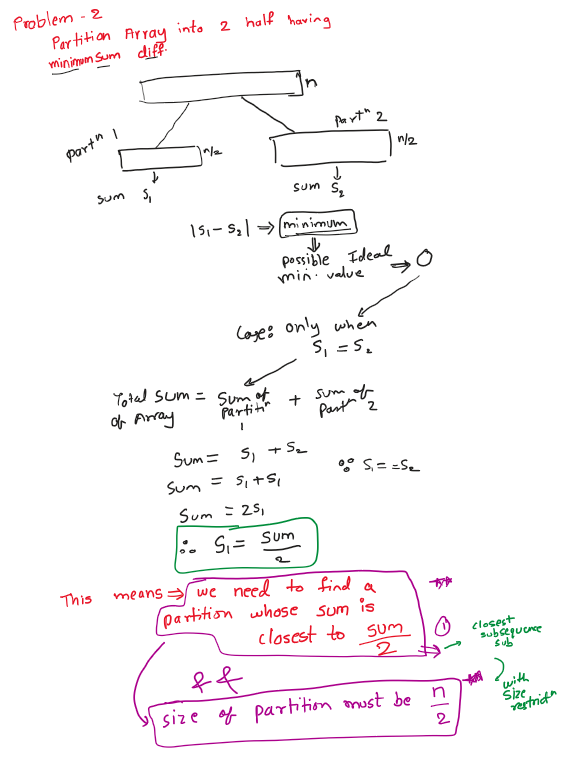 Problem - 2
Partition Array into 2 half having
minimum sum diff.
n
partⁿ 1
n/2
sum S₁
partⁿ 2
n/2
sum S₂
|S₁ - S₂| ⇒ minimum
⇓
possible Ideal
min. value ⇒ 0
Case: only when
S₁ = S₂
Total sum = Sum of + sum of
of Array partitiⁿ 1 partⁿ 2
Sum = S₁ + S₂
∵ S₁ == S₂
Sum = S₁ + S₁
Sum = 2S₁
∴ S₁ = sum/2
This means ⇒ we need to find a
partition whose sum is
closest to sum/2
①
closest
subsequence
sub
with
size
restrictⁿ
&&
size of partition must be n/2